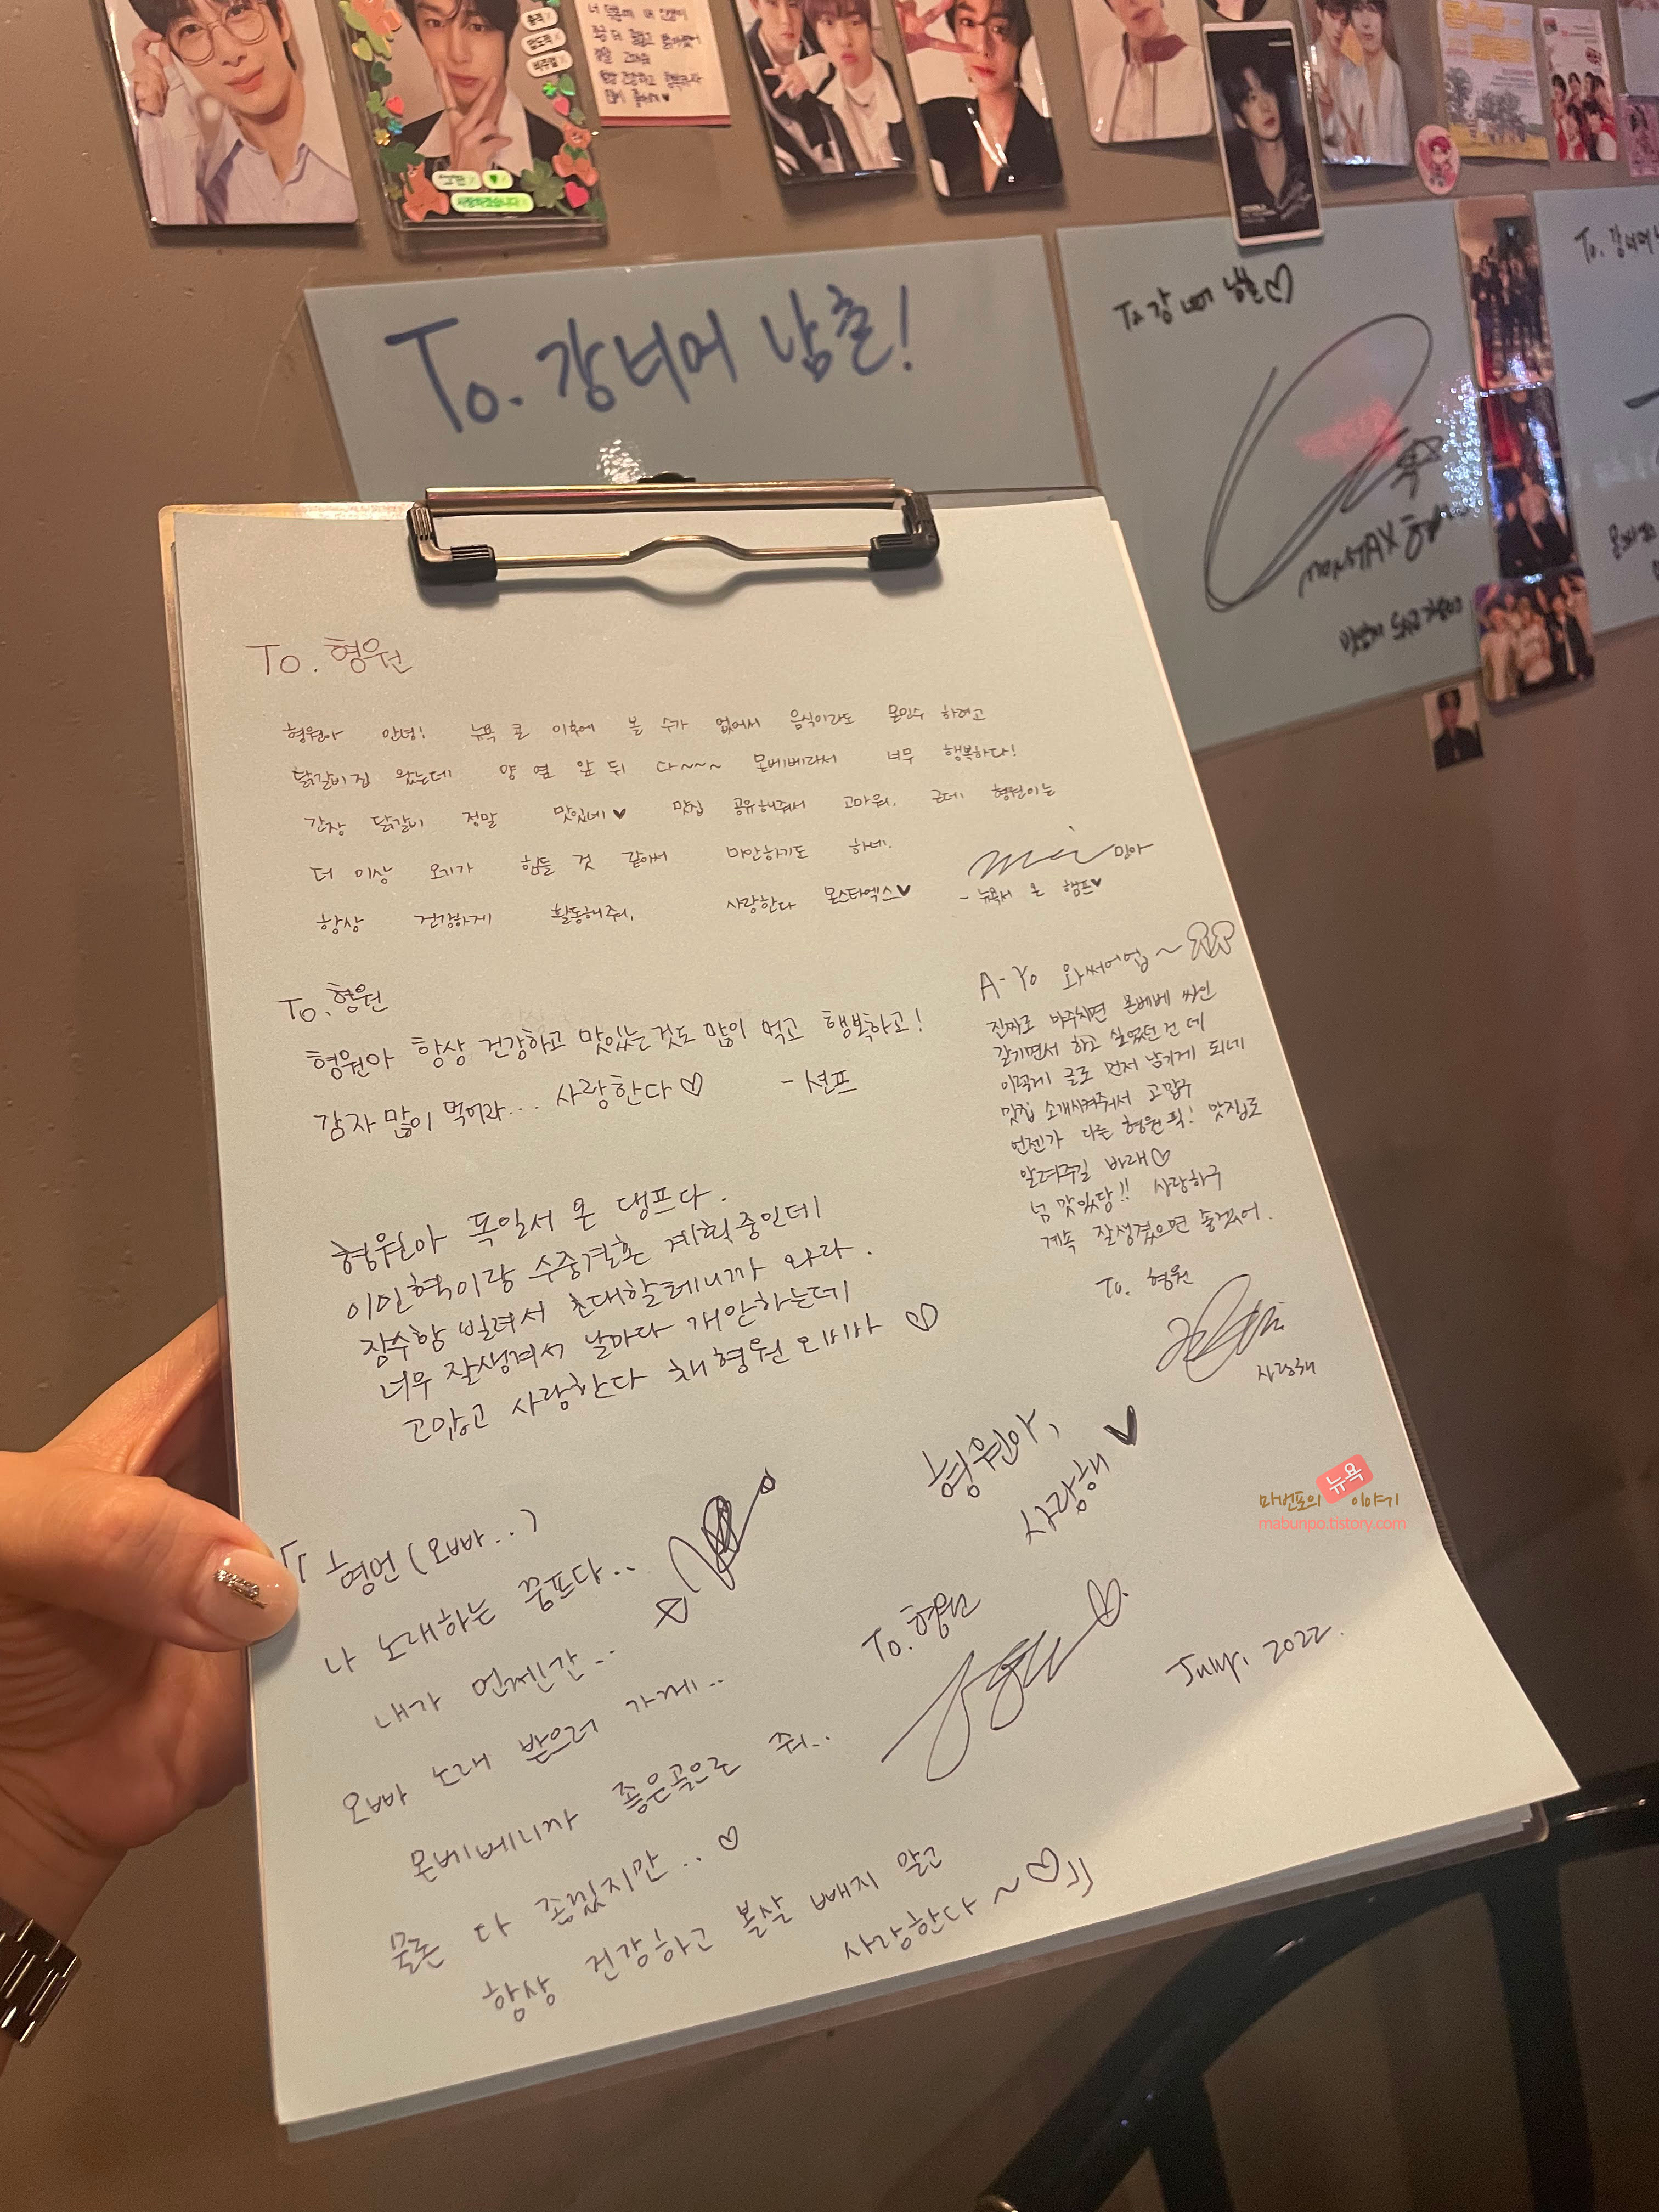 너 덕분에 내 인생이
To. 강너머 남촌!
To 강 너머 남촌♡
MONSTAX 형원
맛있게 드시고 가세요
To. 강너머
To. 형원
형원아 안녕! 뉴욕 콘 이후에 볼 수가 없어서 음식이라도 몬인수 하려고
닭갈비집 왔는데 양 옆 앞 뒤 다~~~ 몬베베라서 너무 행복하다!
간장 닭갈비 정말 맛있네♥ 맛집 공유해줘서 고마워. 근데 형원이는
더 이상 오기가 힘들 것 같아서 미안하기도 하네.
항상 건강하게 활동해줘. 사랑한다 몬스타엑스♥
민아
- 뉴욕서 온 햄프♥
To. 형원
형원아 항상 건강하고 맛있는것도 많이 먹고 행복하고!
감자 많이 먹어라... 사랑한다♡ - 션프
A-Yo 와써어업~
진짜로 마주치면 몬베베 싸인
갈기면서 하고 싶었던 건데
이렇게 글로 먼저 남기게 되네
맛집 소개시켜줘서 고맙구
언젠가 다른 형원픽! 맛집도
알려주길 바래♡
넘 맛있당!! 사랑하구
계속 잘생겼으면 좋겠어.
To. 형원
사랑해
형원아 독일서 온 댕프다.
이민혁이랑 수중결혼 계획중인데
잠수함 빌려서 초대할테니까 와라.
너무 잘생겨서 날마다 개안하는데
고맙고 사랑한다 채형원 오빠 ♡
형원아,
사랑해 ♥
『형언(오빠..)
나 노래하는 꿈프다..
내가 언젠간..
오빠 노래 받으러 가께..
몬베베니까 좋은곡으로 줘..
물론 다 좋겠지만.. ♡
항상 건강하고 볼살 빼지 말고
사랑한다~♡』
To. 형원
July, 2022.
마번포의 뉴욕 이야기
mabunpo.tistory.com